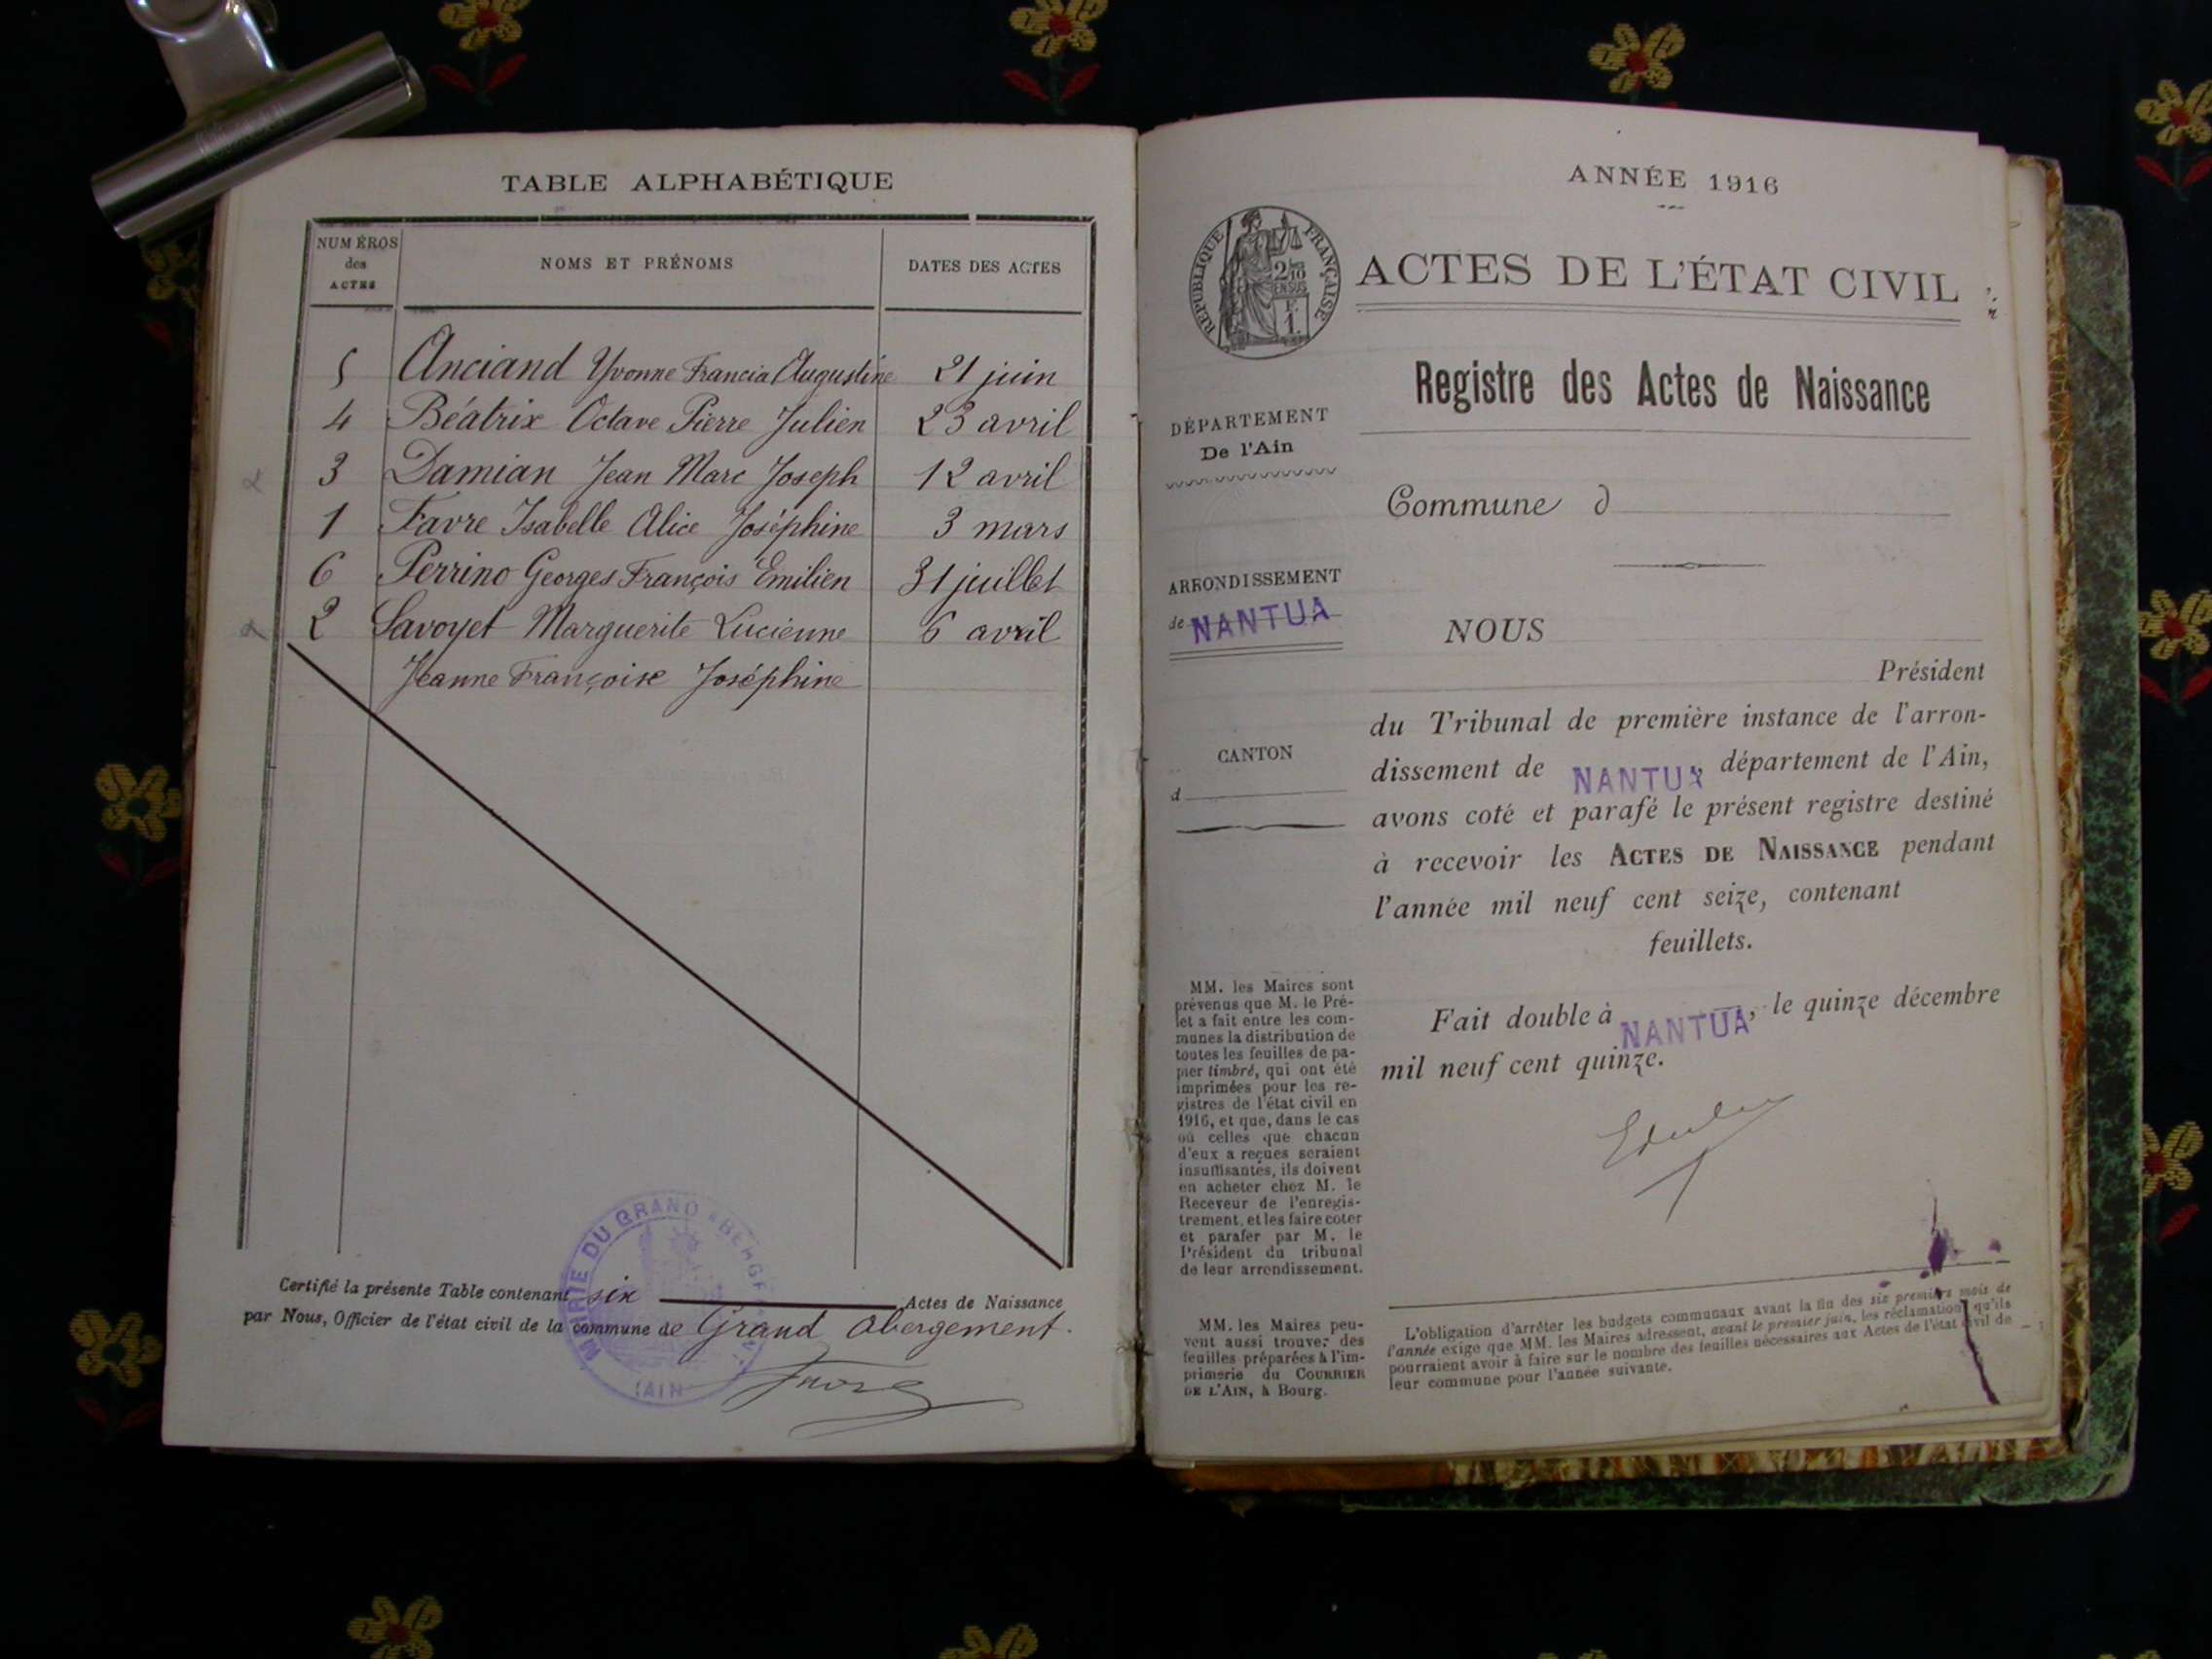 TABLE ALPHABÉTIQUE
NUMÉROS
des
ACTES
NOMS ET PRÉNOMS
DATES DES ACTES
5 Anciand Yvonne Francia Augustine 21 juin
4 Béatrix Octave Pierre Julien 23 avril
3 Damian Jean Marc Joseph 12 avril
1 Favre Isabelle Alice Joséphine 3 mars
6 Perrino Georges François Emilien 31 juillet
2 Savoyet Marguerite Lucienne 6 avril
Jeanne Françoise Joséphine
Certifié la présente Table contenant six Actes de Naissance
par Nous, Officier de l'état civil de la commune de Grand Abergement.
MAIRIE DU GRAND ABERGEMENT
(AIN)
Favre
ANNÉE 1916
RÉPUBLIQUE FRANÇAISE
2/10
EN SUS
F.
1.
ACTES DE L'ÉTAT CIVIL
Registre des Actes de Naissance
DÉPARTEMENT
De l'Ain
Commune d
ARRONDISSEMENT
de NANTUA
NOUS
Président
du Tribunal de première instance de l'arron-
dissement de NANTUA, département de l'Ain,
avons coté et parafé le présent registre destiné
à recevoir les ACTES DE NAISSANCE pendant
l'année mil neuf cent seize, contenant
feuillets.
CANTON
d
Fait double à NANTUA, le quinze décembre
mil neuf cent quinze.
MM. les Maires sont
prévenus que M. le Pré-
fet a fait entre les com-
munes la distribution de
toutes les feuilles de pa-
pier timbré, qui ont été
imprimées pour les re-
gistres de l'état civil en
1916, et que, dans le cas
où celles que chacun
d'eux a reçues seraient
insuffisantes, ils doivent
en acheter chez M. le
Receveur de l'enregis-
trement, et les faire coter
et parafer par M. le
Président du tribunal
de leur arrondissement.
MM. les Maires peu-
vent aussi trouver des
feuilles préparées à l'im-
primerie du COURRIER
DE L'AIN, à Bourg.
L'obligation d'arrêter les budgets communaux avant la fin des six premiers mois de
l'année exige que MM. les Maires adressent, avant le premier juin, les réclamations qu'ils
pourraient avoir à faire sur le nombre des feuilles nécessaires aux Actes de l'état civil de
leur commune pour l'année suivante.